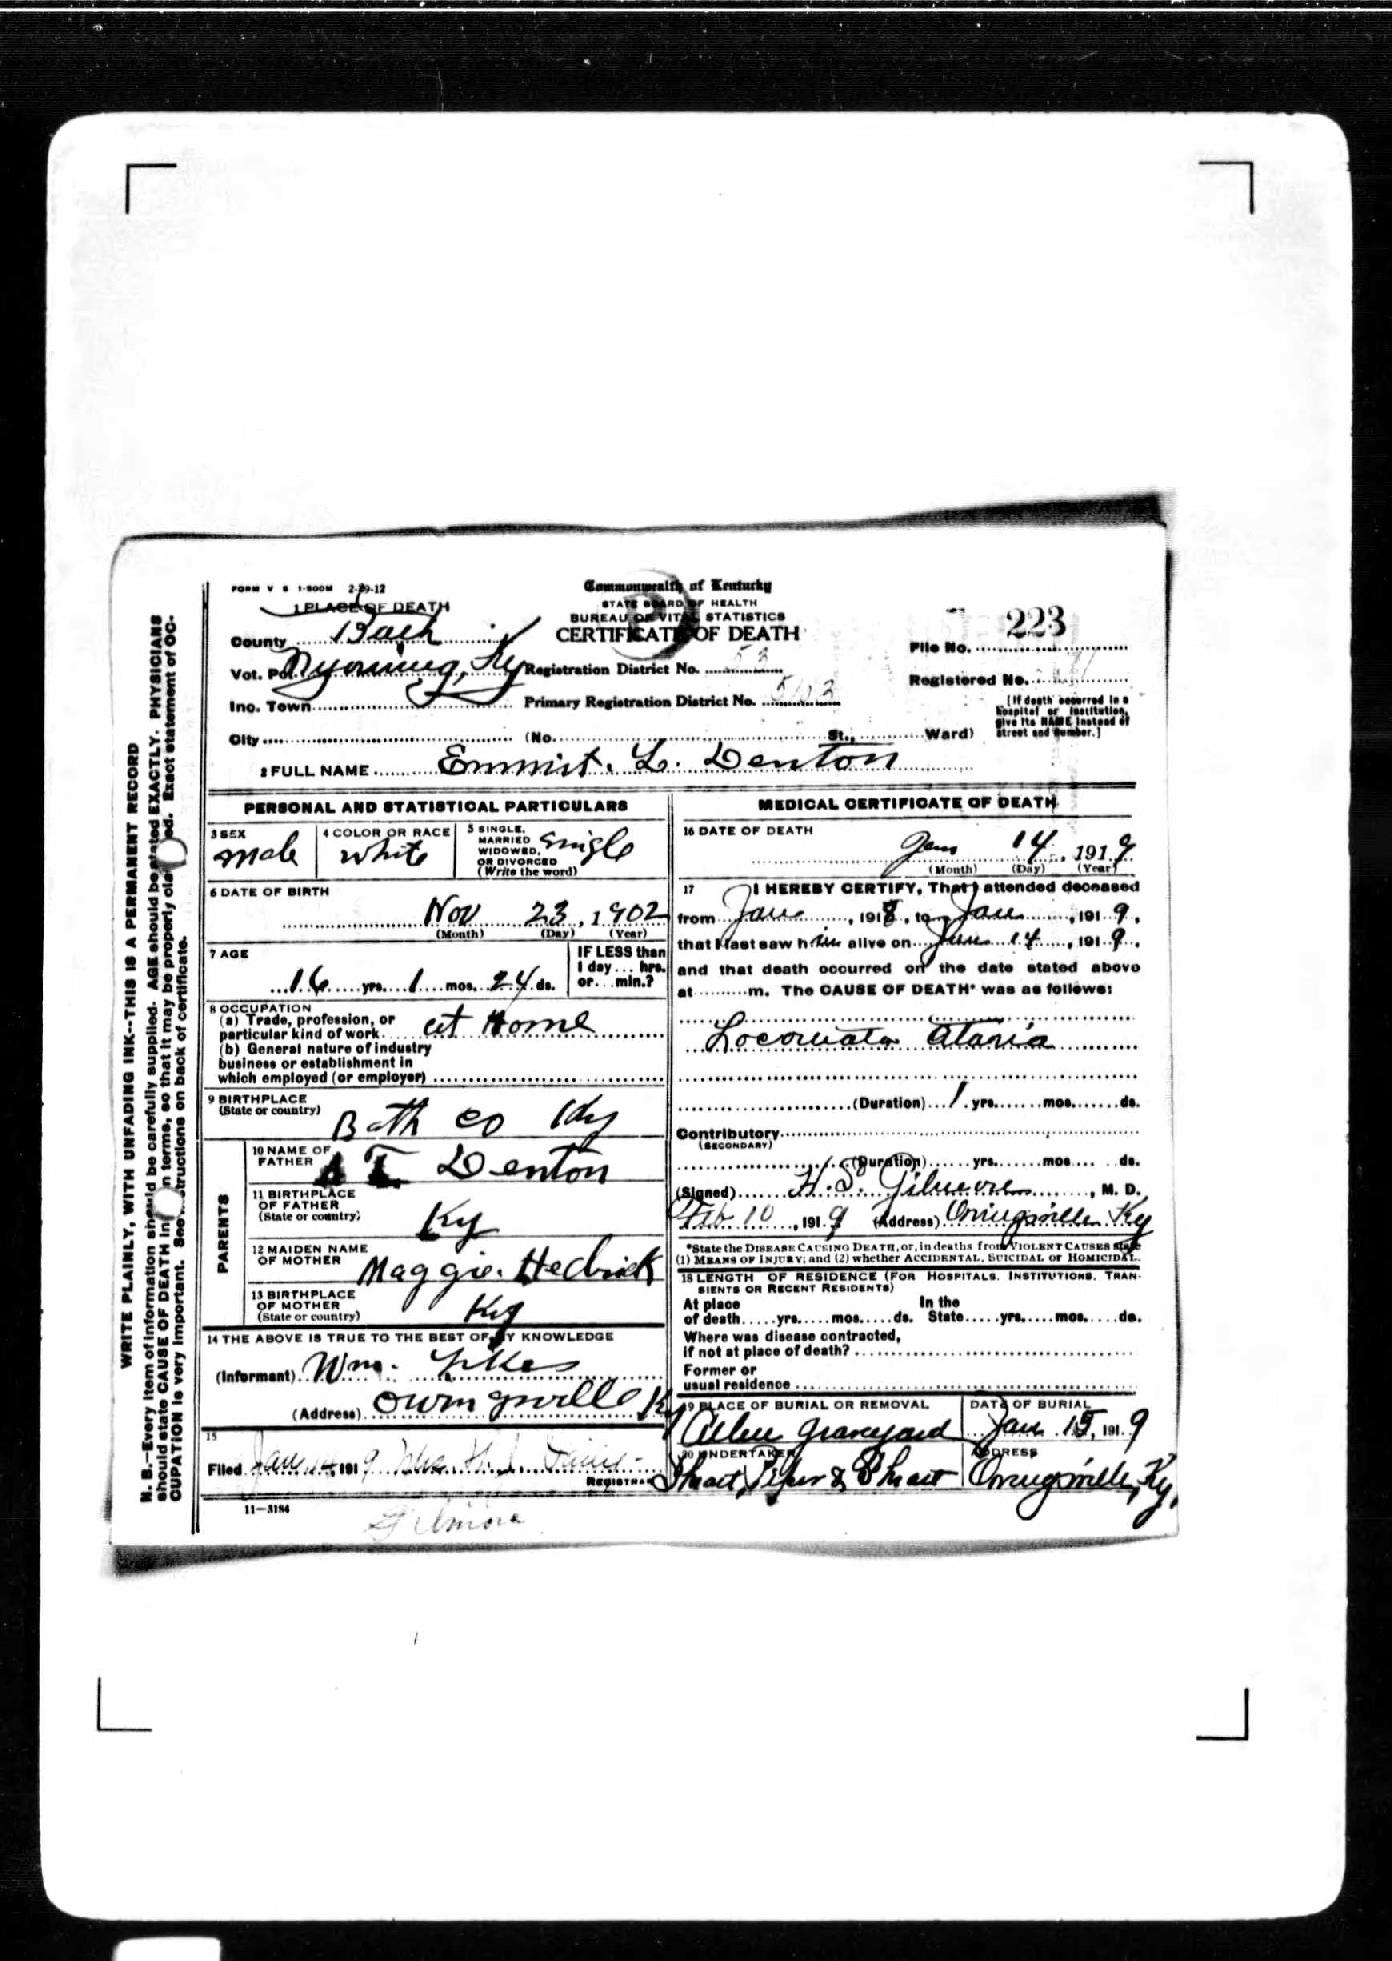 FORM V S 1-500M 2-29-12
Commonwealth of Kentucky
STATE BOARD OF HEALTH
BUREAU OF VITAL STATISTICS
CERTIFICATE OF DEATH
1 PLACE OF DEATH
County Bath
Vot. Pct. Wyoming, Ky
Inc. Town
City
(No. St., Ward)
Registration District No. 53
Primary Registration District No.
223
File No.
Registered No.
[If death occurred in a
hospital or institution,
give its NAME instead of
street and number.]
2 FULL NAME Emmit. L. Denton
PERSONAL AND STATISTICAL PARTICULARS
3 SEX
male
4 COLOR OR RACE
White
5 SINGLE,
MARRIED
WIDOWED,
OR DIVORCED
(Write the word)
Single
6 DATE OF BIRTH
Nov 23, 1902
(Month) (Day) (Year)
7 AGE
16 yrs. 1 mos. 24 ds.
IF LESS than
1 day... hrs.
or... min.?
8 OCCUPATION
(a) Trade, profession, or
particular kind of work at Home
(b) General nature of industry
business or establishment in
which employed (or employer)
9 BIRTHPLACE
(State or country)
Bath co Ky
PARENTS
10 NAME OF
FATHER
A T Denton
11 BIRTHPLACE
OF FATHER
(State or country)
Ky
12 MAIDEN NAME
OF MOTHER
Maggie. Hedrick
13 BIRTHPLACE
OF MOTHER
(State or country)
Ky
14 THE ABOVE IS TRUE TO THE BEST OF MY KNOWLEDGE
(Informant) Wm.
(Address) Owingsville Ky
15
Filed Jan 14, 1919 Mrs
REGISTRAR
11—3184
Gilmore
MEDICAL CERTIFICATE OF DEATH
16 DATE OF DEATH
Jan 14, 1919
(Month) (Day) (Year)
17 I HEREBY CERTIFY, That I attended deceased
from Jan, 1918, to Jan, 1919,
that I last saw him alive on Jan 14, 1919,
and that death occurred on the date stated above
at m. The CAUSE OF DEATH* was as follows:
Locomata Ataxia
(Duration) 1 yrs. mos. ds.
Contributory
(SECONDARY)
(Duration) yrs. mos. ds.
(Signed) H. S. Gilmore, M. D.
Feb 10, 1919 (Address) Owingsville Ky
*State the DISEASE CAUSING DEATH, or, in deaths from VIOLENT CAUSES state
(1) MEANS OF INJURY; and (2) whether ACCIDENTAL, SUICIDAL or HOMICIDAL.
18 LENGTH OF RESIDENCE (FOR HOSPITALS, INSTITUTIONS, TRAN-
SIENTS OR RECENT RESIDENTS)
At place In the
of death yrs. mos. ds. State yrs. mos. ds.
Where was disease contracted,
if not at place of death?
Former or
usual residence
19 PLACE OF BURIAL OR REMOVAL
graveyard
DATE OF BURIAL
Jan 15, 1919
20 UNDERTAKER
Shrout, Piper & Shrout
ADDRESS
Owingsville, Ky,
WRITE PLAINLY, WITH UNFADING INK--THIS IS A PERMANENT RECORD
N. B.—Every item of information should be carefully supplied. AGE should be stated EXACTLY. PHYSICIANS
should state CAUSE OF DEATH in terms, so that it may be properly Exact statement of OC-
CUPATION is very important. See instructions on back of certificate.